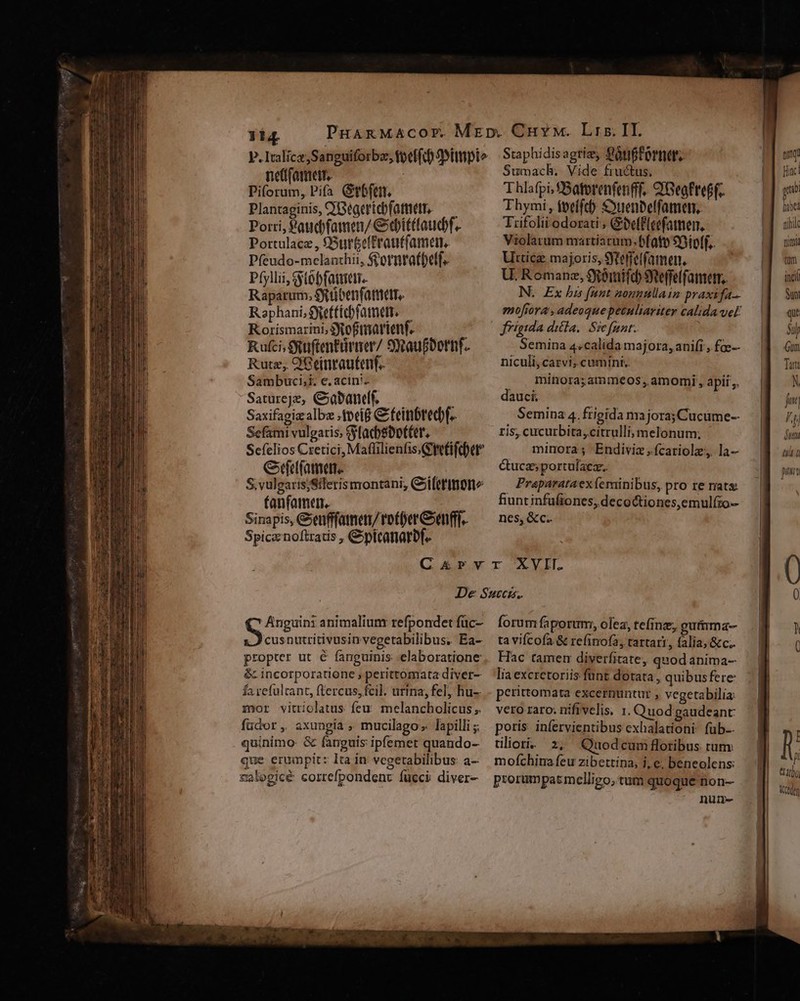 114 PHARMACOP. MED. CHYM. LIB. II.
P. Italicæ, Sanguiſorbæ, welſch Pimpi-
nellſamen.
Piſorum, Piſa Erbſen.
Plantaginis, Wegerichſamen.
Porri, Lauchſamen/ Schittlauchſ.
Portulacæ, Burtzelkrautſamen.
Pſeudo-melanthii, Kornrathelſ.
Pſyllii, Flöhſamen.
Raparum, Rübenſamen.
Raphani, Rettichſamen.
Rorismarini, Roßmarienſ.
Ruſci, Ruſtenkürner/ Maußdornſ.
Rutæ, Weinrautenſ.
Sambuci, i. e. acini.
Saturejæ, Sadanelſ.
Saxifagiæ albæ, weiß Steinbrechſ.
Seſami vulgaris, Flachsdotter.
Seſelios Cretici, Maſſilienſis, Cretiſcher
Seſelſamen.
S. vulgaris, Sileris montani, Silermon-
tanſamen.
Sinapis, Senffſamen/ rother Senff.
Spicæ noſtratis, Spicanardſ.
Staphidis agriæ, Läußkörner.
Sumach. Vide fructus.
Thlaſpi, Bawrenſenff. Wegkreßſ.
Thymi, welſch Quendelſamen.
Trifolii odorati, Edelkleeſamen.
Violarum martiarum, blaw Violſ.
Urticæ majoris, Neſſelſamen.
U. Romanæ, Römiſch Neſſelſamen.
N. Ex his ſunt nonnulla in praxi fa-
moſiora, adeoque peculiariter calida vel
frigida dicta. Sic ſunt.
Semina 4. calida majora, aniſi, fœ-
niculi, carvi, cumini.
minora; ammeos, amomi, apii,
dauci.
Semina 4. frigida majora; Cucume-
ris, cucurbita, citrulli, melonum,
minora; Endiviæ, ſcariolæ, la-
ctucæ, portulacæ.
Præparata ex ſeminibus, pro re nata
fiunt infuſiones, decoctiones, emulſio-
nes, &c.
CAPVT XVII.
De Succis.
SAnguini animalium reſpondet ſuc-
cus nutritivus in vegetabilibus. Ea-
propter ut è ſanguinis elaboratione
& incorporatione, perittomata diver-
ſa reſultant, ſtercus, ſcil. urina, fel, hu-
mor vitriolatus ſeu melancholicus,
ſudor, axungia, mucilago, lapilli;
quinimo & ſanguis ipſemet quando-
que erumpit: Ita in vegetabilibus a-
nalogicè correſpondent ſucci diver-
ſorum ſaporum, olea, reſinæ, gumma-
ta viſcoſa & reſinoſa, tartari, ſalia, &c.
Hac tamen diverſitate, quod anima-
lia excretoriis ſunt dotata, quibus fere
perittomata excernuntur, vegetabilia
verò raro. niſi velis. 1. Quod gaudeant
poris inſervientibus exhalationi ſub-
tiliori. 2. Quod cum floribus tum
moſchina ſeu zibettina, i. e. beneolens
prorumpat melligo, tum quoque non-
nun-